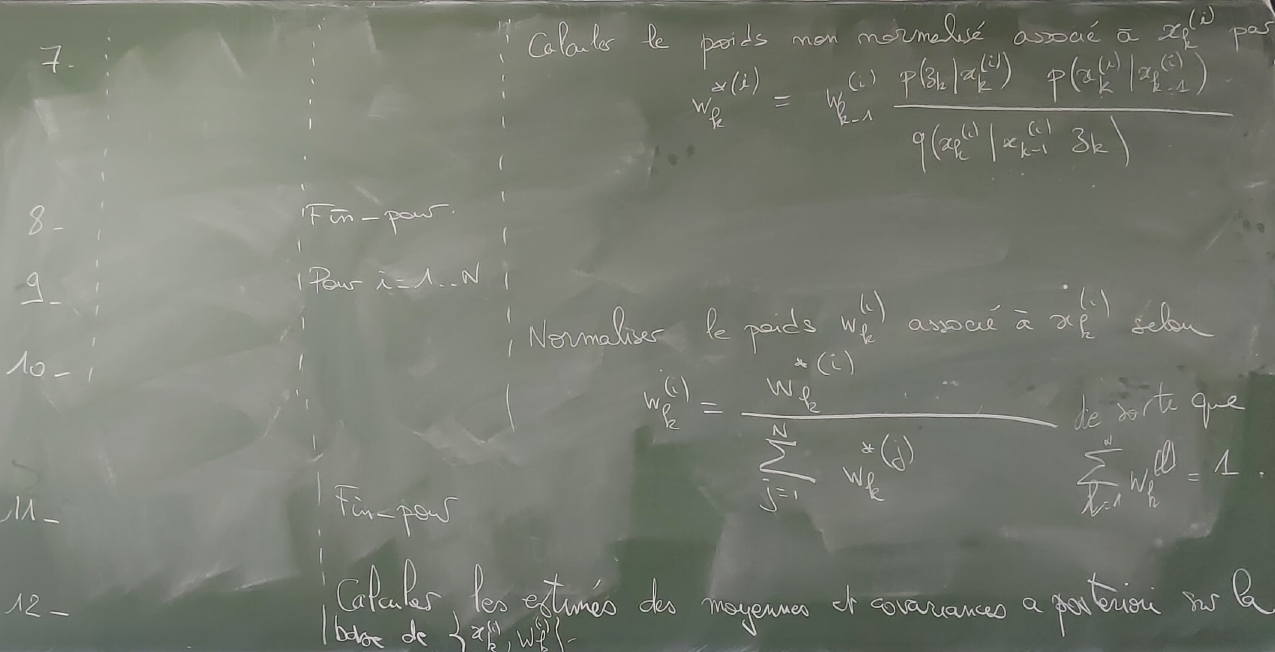 7- Calculer le poids non normalisé associé à x_k^{(i)} par
w_k^{*(i)} = w_{k-1}^{(i)} \frac{p(z_k|x_k^{(i)}) p(x_k^{(i)}|x_{k-1}^{(i)})}{q(x_k^{(i)}|x_{k-1}^{(i)} z_k)}
8- Fin-pour
9- Pour i=1..N
10- Normaliser le poids w_k^{(i)} associé à x_k^{(i)} selon
w_k^{(i)} = \frac{w_k^{*(i)}}{\sum_{j=1}^{N} w_k^{*(j)}} de sorte que \sum_{l=1}^{N} w_k^{(l)} = 1.
11- Fin-pour
12- Calculer les estimés des moyennes et covariances a posteriori sur la
base de {x_k^{(i)}, w_k^{(i)}}.